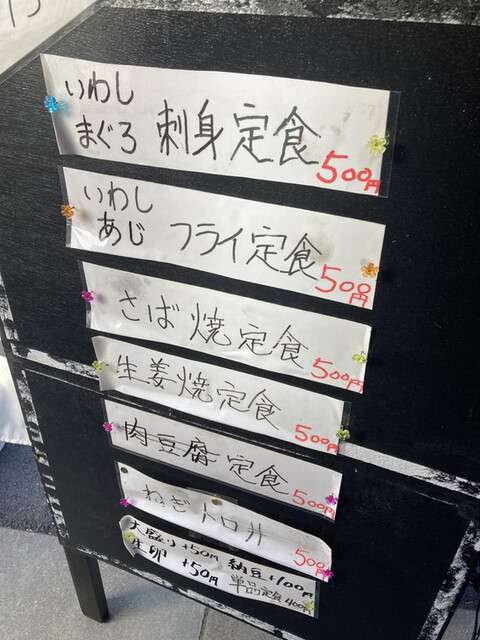 いわし
まぐろ 刺身定食 500円
いわし
あじ フライ定食 500円
さば焼定食 500円
生姜焼定食 500円
肉豆腐定食 500円
ねぎトロ丼 500円
大盛り+50円 納豆+100円
生卵 +50円 単品定食400円